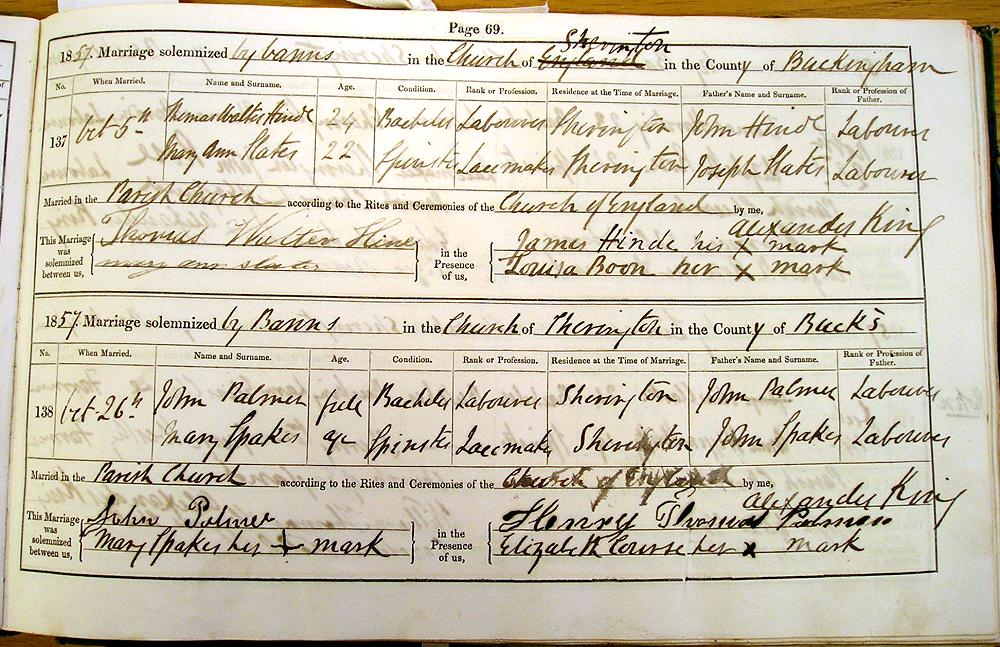 Page 69.
1857. Marriage solemnized by banns in the Church of England Sherington in the County of Buckingham
No. When Married. Name and Surname. Age. Condition. Rank or Profession. Residence at the Time of Marriage. Father's Name and Surname. Rank or Profession of Father.
137 Oct 5th Thomas Walter Hinde 24 Bachelor Labourer Sherington John Hinde Labourer
Mary Ann Slater 22 Spinster Lacemaker Sherington Joseph Slater Labourer
Married in the Parish Church according to the Rites and Ceremonies of the Church of England by me,
Alexander King
This Marriage was solemnized between us, Thomas Walter Hine in the Presence of us, James Hinde his X mark
mary ann slater Louisa Boon her X mark
1857. Marriage solemnized by Banns in the Church of Sherington in the County of Bucks
No. When Married. Name and Surname. Age. Condition. Rank or Profession. Residence at the Time of Marriage. Father's Name and Surname. Rank or Profession of Father.
138 Oct 26th John Palmer full Bachelor Labourer Sherington John Palmer Labourer
Mary Spakes age Spinster Lacemaker Sherington John Spakes Labourer
Married in the Parish Church according to the Rites and Ceremonies of the Church of England by me,
Alexander King
This Marriage was solemnized between us, John Palmer in the Presence of us, Henry Thomas Palmer
Mary Spakes her + mark Elizabeth Course her X mark